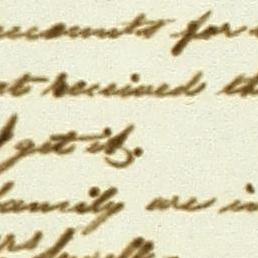 accounts for
received
get it.
family are in